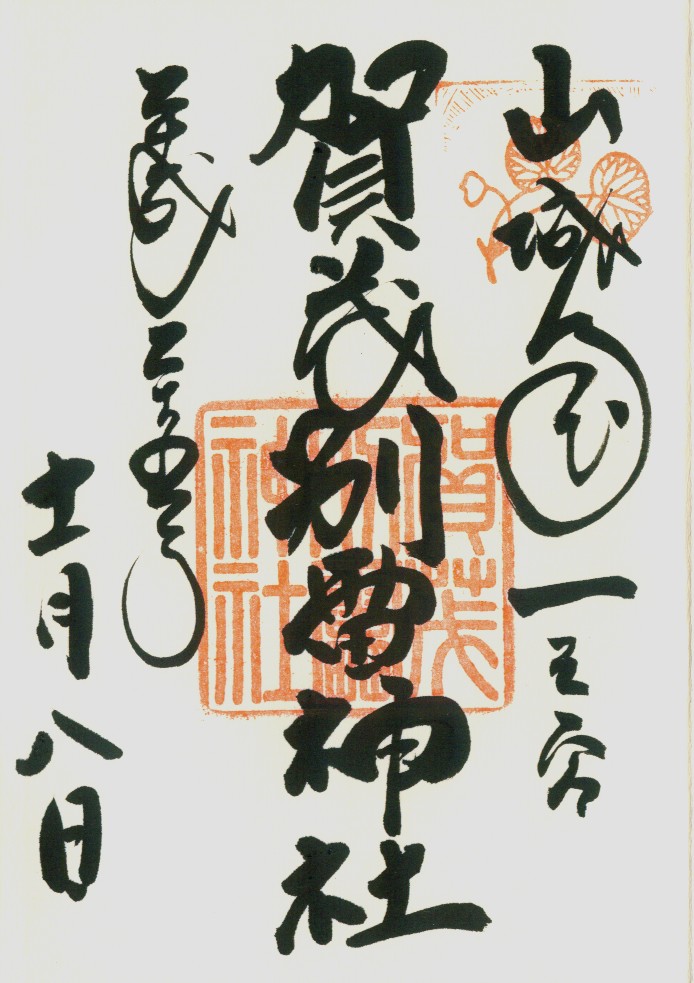 山城国一之宮
賀茂別雷神社
平成二十五年
十一月八日
賀茂
別雷
神社